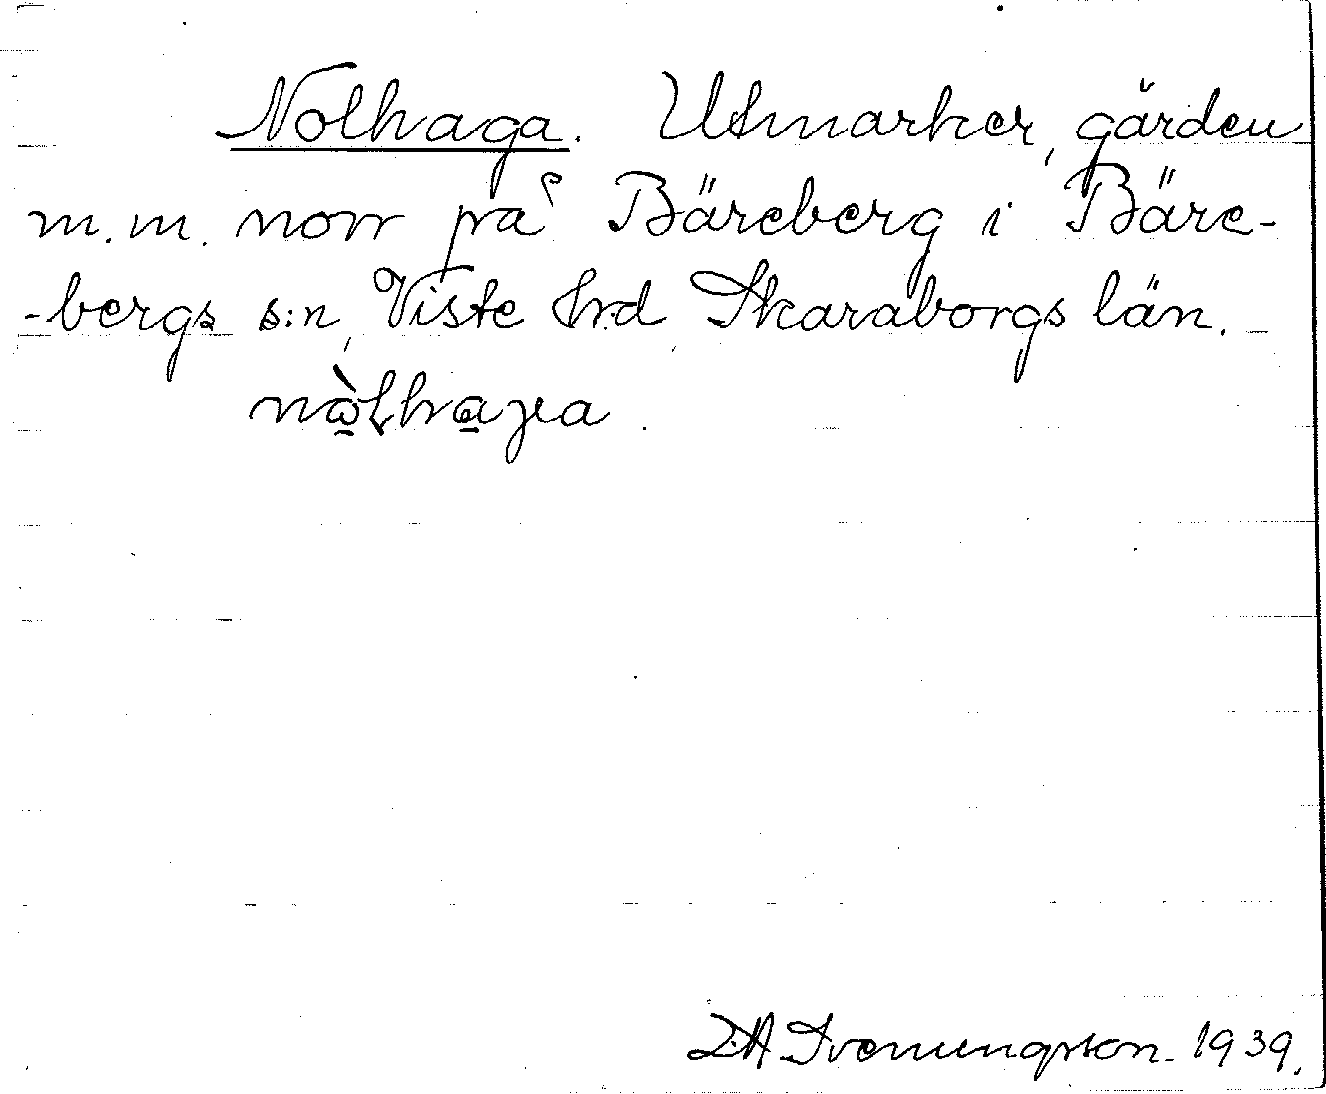 Nolhaga. Utmarker, gärden
m.m. norr på Bäreberg i Bäre-
-bergs s:n, Viste hrd Skaraborgs län.
D.A Svenungsson. 1939.